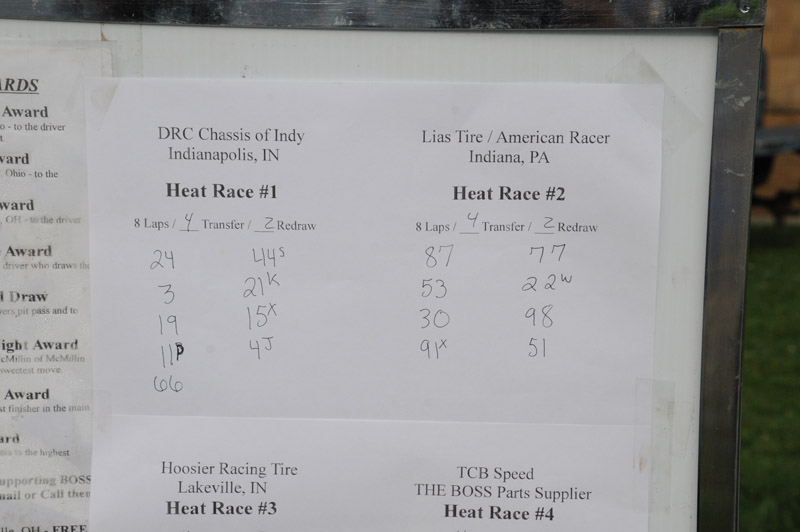 ARDS
Award
o - to the driver
ward
, Ohio - to the
ward
, OH - to the driver
Award
driver who draws the
l Draw
vers pit pass and to
ight Award
cMillin of McMillin
sweetest move.
Award
st finisher in the main
ard
to the highest
upporting BOSS
mail or Call then
OH - FREE
DRC Chassis of Indy
Indianapolis, IN
Heat Race #1
8 Laps / 4 Transfer / 2 Redraw
24 44s
3 21K
19 15x
11P 4J
66
Lias Tire / American Racer
Indiana, PA
Heat Race #2
8 Laps / 4 Transfer / 2 Redraw
87 77
53 22w
30 98
91x 51
Hoosier Racing Tire
Lakeville, IN
Heat Race #3
TCB Speed
THE BOSS Parts Supplier
Heat Race #4